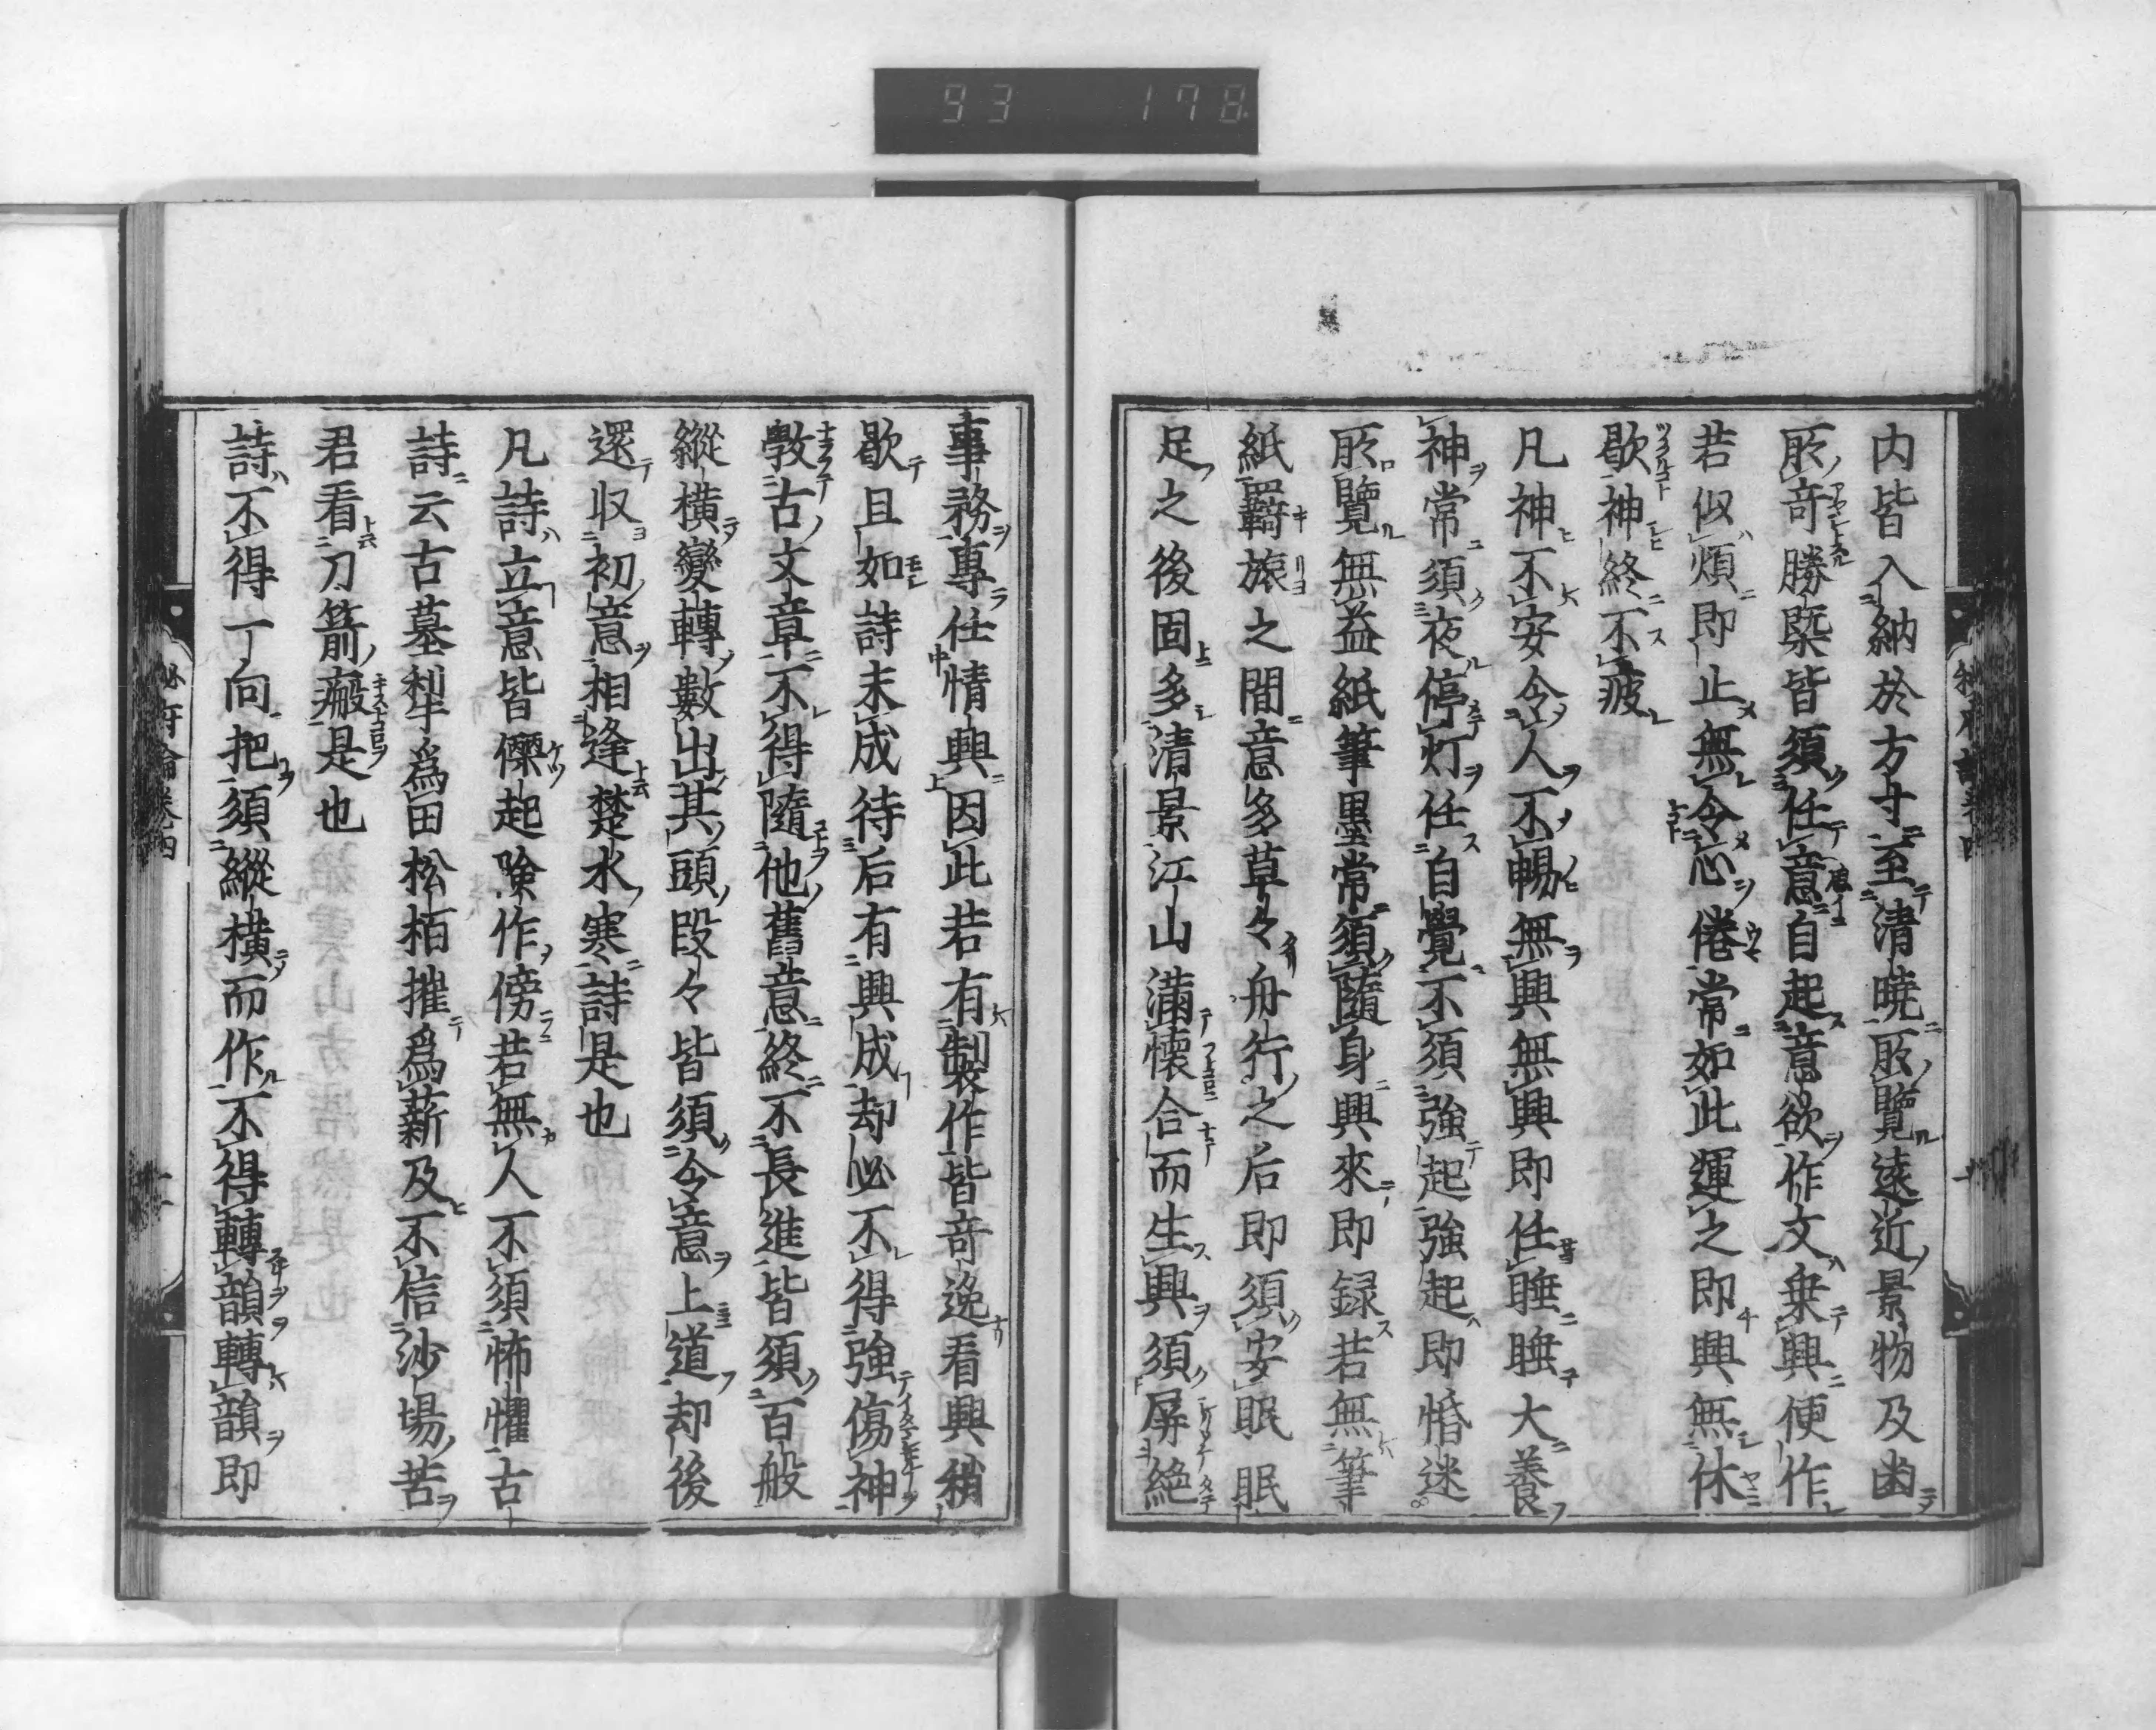 93 178
内皆入納於方寸至清曉所覽遠近景物及幽
所奇勝槩皆須任意自起意欲作文乗興便作
若似煩即止無令心倦常如此運之即興無休
歇神終不疲
凡神不安令人不暢無興無興即任睡睡大養
神常須夜停灯任自覺不須強起強起即惛迷
所覽無益紙筆墨常須隨身興來即録若無筆
紙羇旅之間意多草々舟行之后即須安眠眠
足之後固多清景江山滿懐合而生興須屏絶
事務專任情興因此若有製作皆奇逸看興稍
歇且如詩未成待后有興成却必不得強傷神
斅古文章不得隨他舊意終不長進皆須百般
縱横變轉數出其頭段々皆須令意上道却後
還収初意相逢楚水寒詩是也
凡詩立意皆傑起険作傍若無人不須怖懼古
詩云古墓犁爲田松栢摧爲薪及不信沙場苦
君看刀箭瘢是也
詩不得一向把須縱横而作不得轉韻轉韻即